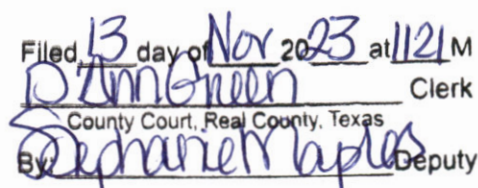 Filed 13 day of Nov 2023 at 1121 M
D'Ann Green Clerk
County Court, Real County, Texas
By: Stephanie Maples Deputy